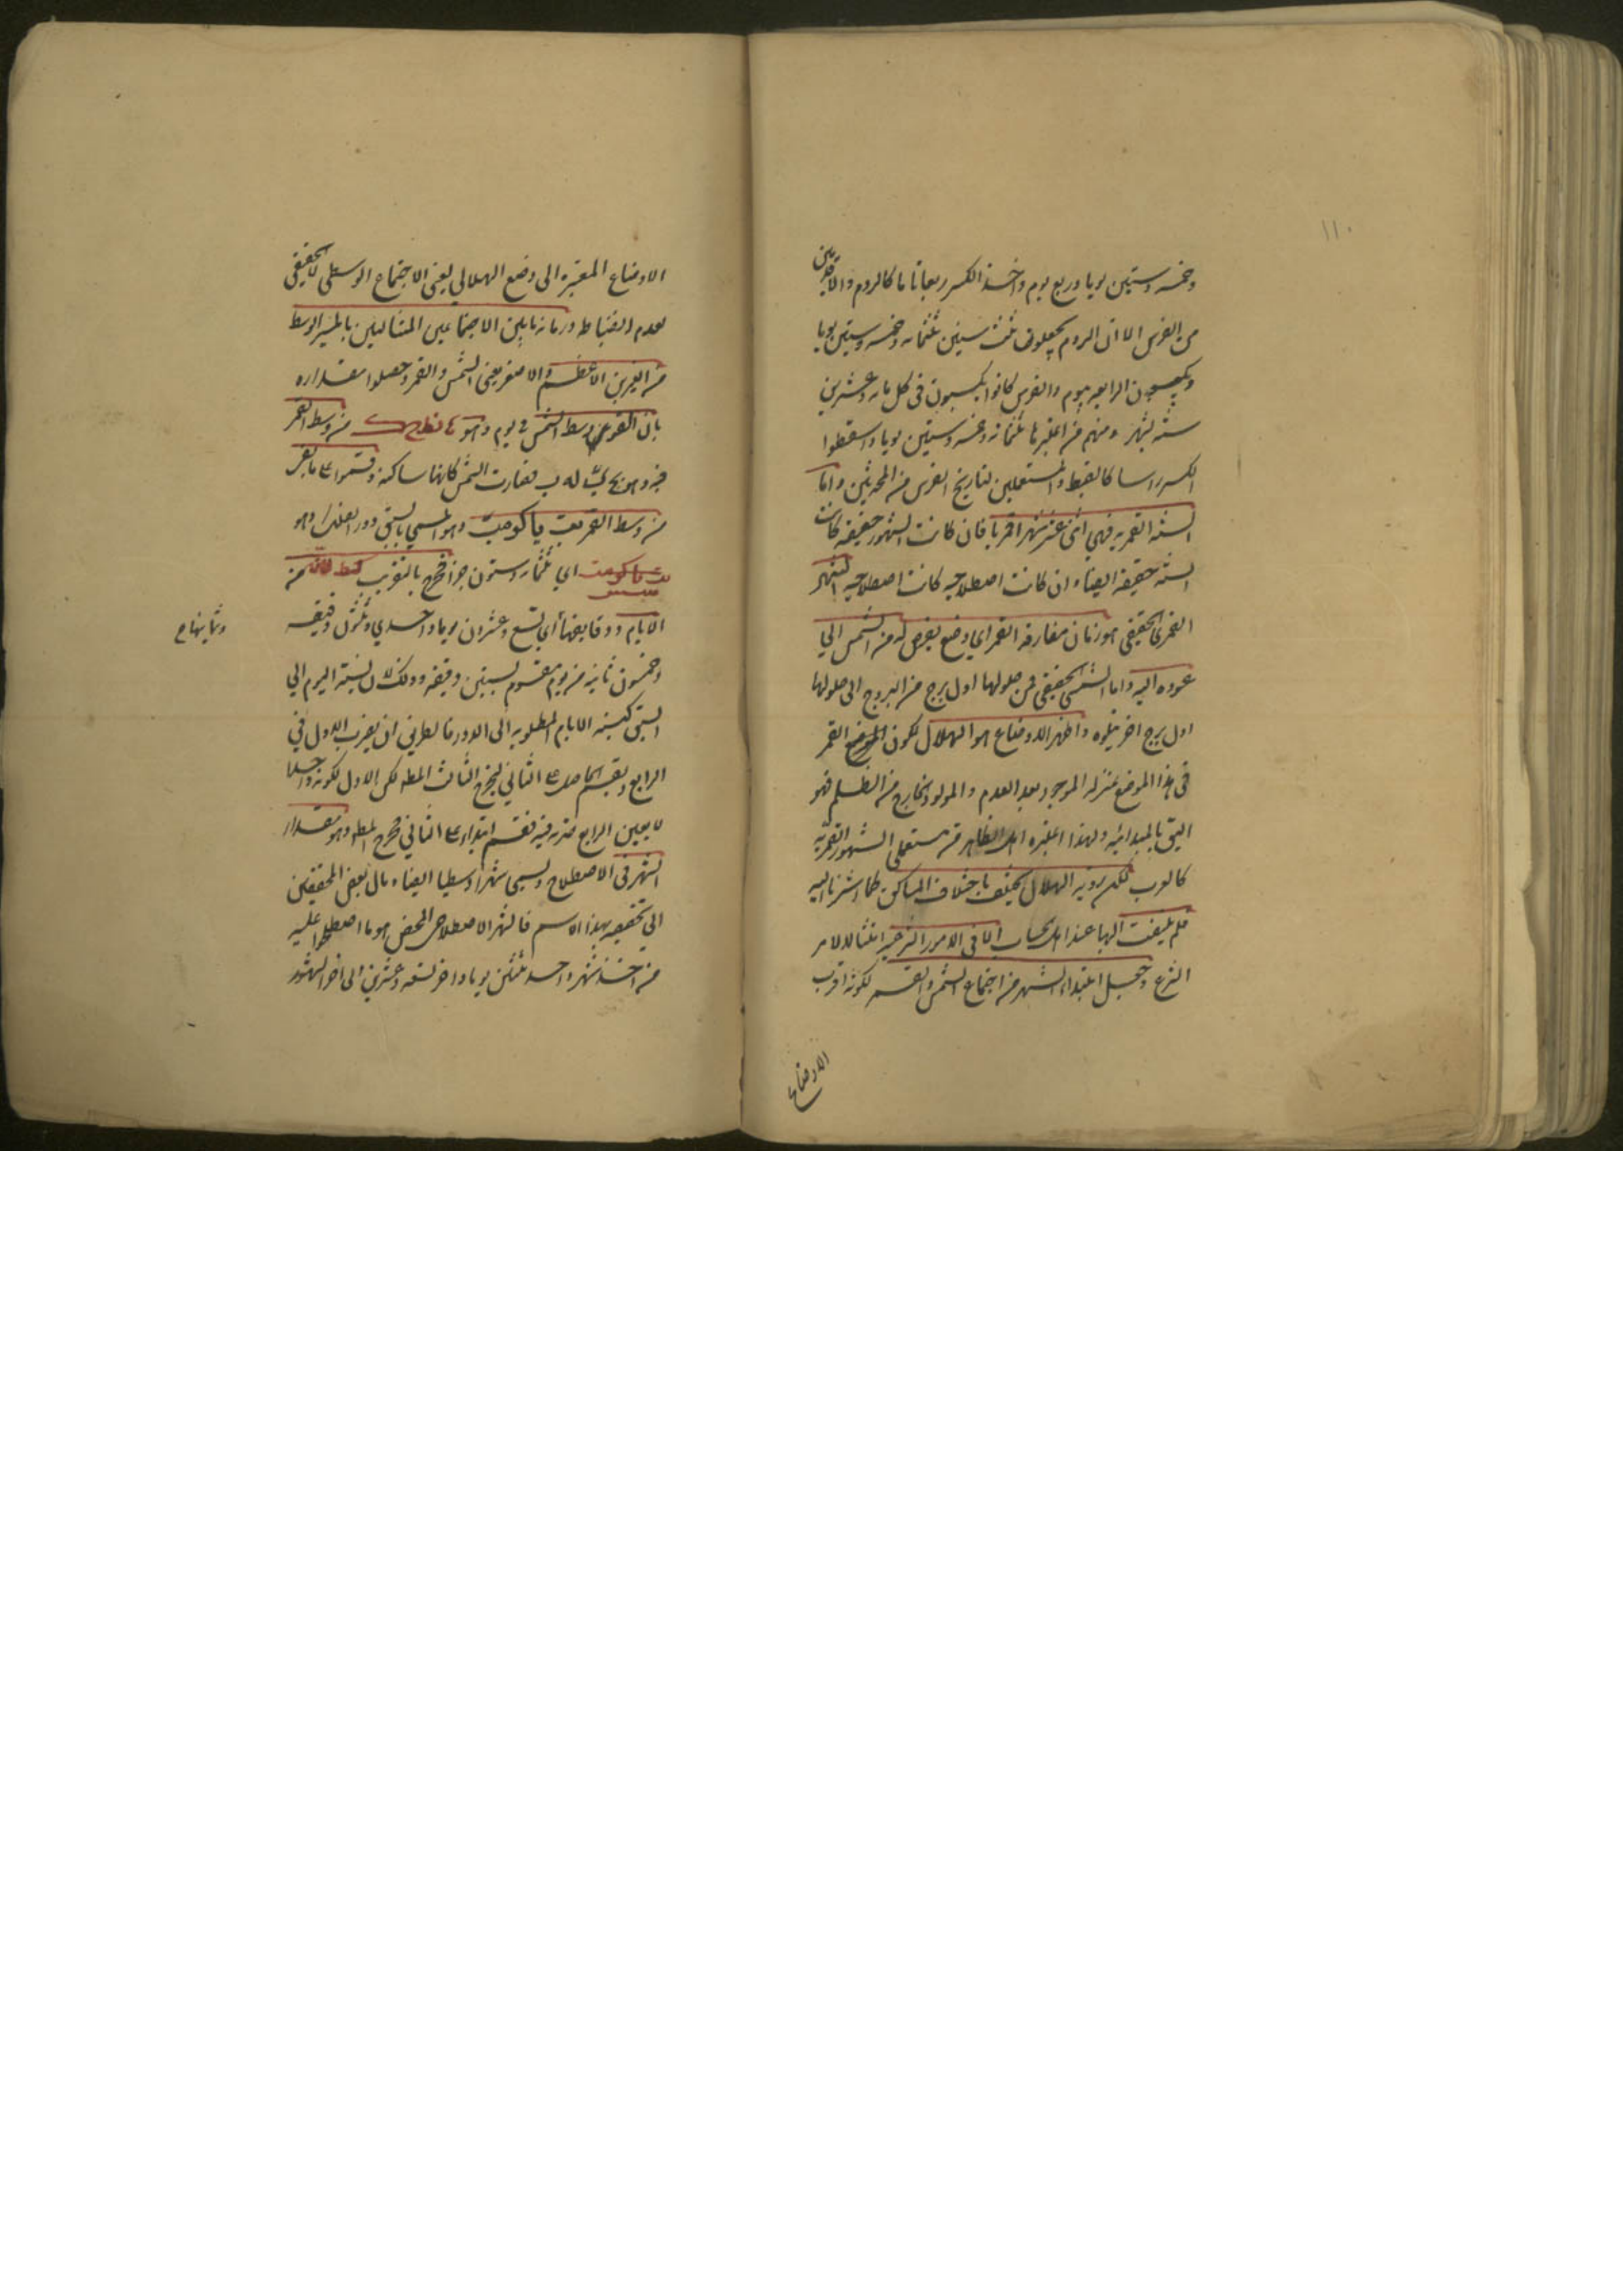 ١١٠
وخمسه وستين يوما وربع يوم واخذ الكسر ربعا تاما كالروم والاقدمين
من الفرس الا ان الروم يجعلون ثلث سنين ثلثمائه وخمسه وستين يوما
ويكبسون الرابعه بيوم والفرس كانوا يكبسون فى كل مائه وعشرين
سنه بشهر ومنهم من اعتبرها ثلثمائه وخمسه وستين يوما واسقطوا
الكسر راسا كالقبط والمستعملين لتاريخ الفرس من المحدثين واما
السنه القمريه فهي اثنى عشر شهرا قمريا فان كانت الشهور حقيقه كانت
السنه حقيقه ايضا وان كانت اصطلاحيه كانت اصطلاحيه الشهر
القمرى الحقيقى هو زمان مفارقه القمر اي وضع يفرض له من الشمس الي
عوده اليه واما الشمسى الحقيقى فمن حلولها اول برج من البروج الى حلولها
اول برج اخر يتلوه واظهر الاوضاع هو الهلال لكون القمر
فى هذا الموضع بمنزله الموجود بعد العدم والمولود الخارج من الظلم فهو
اليق بالمبدائيه ولهذا اعتبره اهل الظاهر من مستعملى الشهور القمريه
كالعرب لكن رويه الهلال يختلف باختلاف المساكن كما اشرنا اليه
فلم يلتفت اليها عند اهل الحساب الا فى الامور الشرعيه امتثالا لامر
الشرع وجعل ابتداء الشهر من اجتماع الشمس والقمر لكونه اقرب
الاوضاع
الاوضاع المعتبره الى وضع الهلالى يعنى الاجتماع الوسطى لا الحقيقى
لعدم انضباط زمانه ما بين الاجتماعين المتتاليين بالمسير الوسط
من النيرين الاعظم والاصغر يعنى الشمس والقمر وحصلوا مقداره
بان القوا وسط الشمس فى يوم وهو من وسط القمر
فيه وهو فصارت الشمس كانها ساكنه وقسموا على ما بقى
من وسط القمر وهو المسمي بالسبق دور الفلك وهو
اي ثلثمائه وستون جزا فخرج بالتقريب من
الايام ودقايقها اي تسع وعشرون يوما واحدي وثلثون دقيقه
وثوانيها
وخمسون ثانيه من يوم مقسوم بستين دقيقه وذلك لان نسبته اليوم الي
السبق كنسبه الايام المطلوبه الى الدور فالطريق ان يضرب الاول في
الرابع ويقسم الحاصل على الثانى ليخرج الثالث المط لكن الاول لكونه واحدا
لا يغير الرابع ضربه فيه فقسم ابتداء على الثانى فخرج المط وهو مقدار
الشهر فى الاصطلاح ويسمى شهرا وسطيا ايضا ومال بعض المحققين
الى تخصيصه بهذا الاسم فالشهر الاصطلاحى المحض هو ما اصطلحوا عليه
من اخذ شهر واحد ثلثين يوما واخر تسعه وعشرين الى اخر الشهور